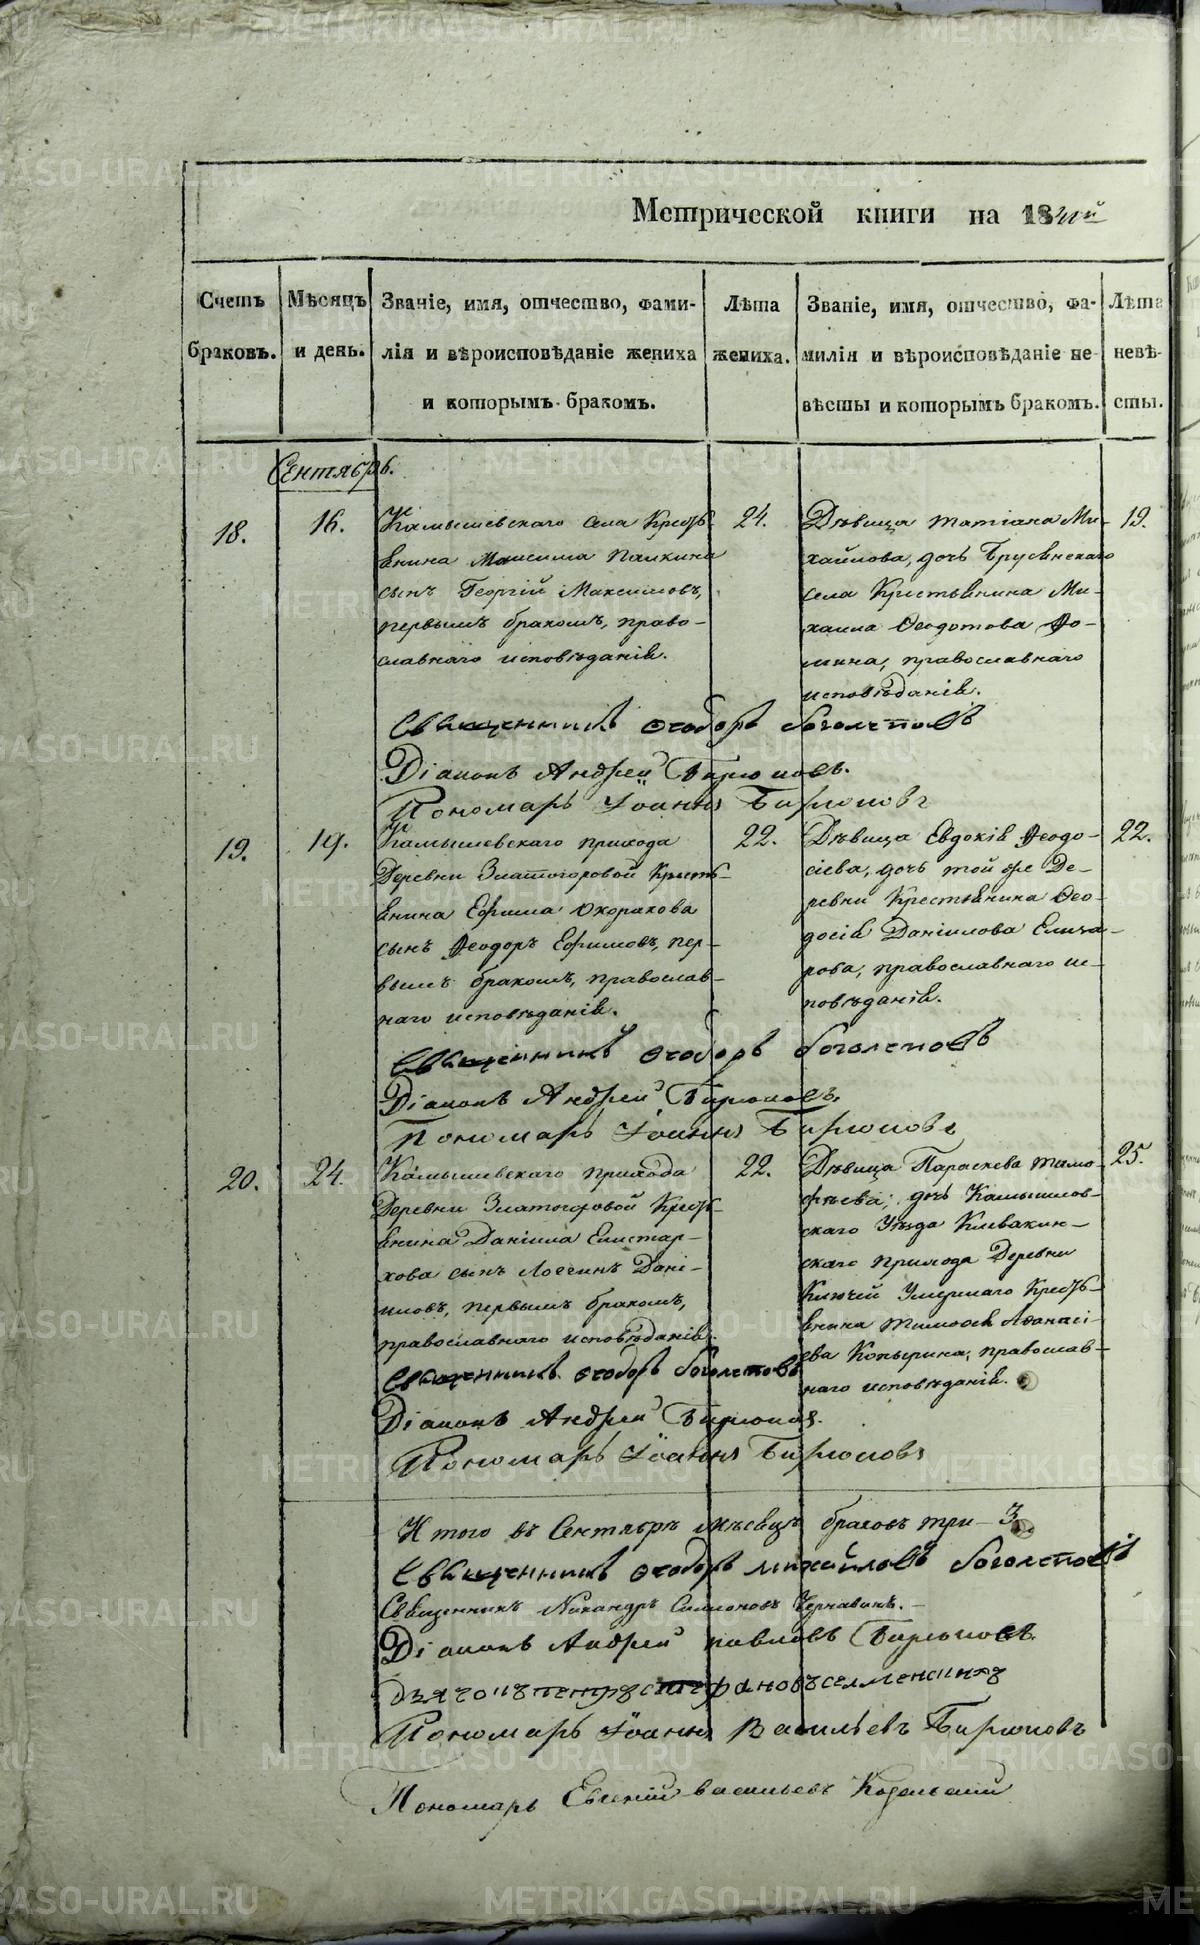 Метрической книги на 184
Счетъ браковъ.
Мѣсяцъ и день.
Званіе, имя, отчество, фами-
лія и вѣроисповѣданіе жениха
и которымъ бракомъ.
Лѣта жениха.
Званіе, имя, отчество, фа-
милія и вѣроисповѣданіе не-
вѣсты и которымъ бракомъ.
Лѣта невѣ-
сты.
Сентябрь.
18.
16.
Камышевскаго села Кресть
янина Максима Палкина
сынъ Георгій Максимовъ,
первымъ бракомъ, право-
славнаго исповѣданія.
24.
Дѣвица Татіана Ми-
хайлова, дочь Брусянскаго
села Крестьянина Ми-
хаила Ѳеодотова Ѳо-
мина, православнаго
исповѣданія.
19.
Священникъ Ѳеодоръ Боголеповъ
Діаконъ Андрей Бирюковъ.
Пономарь Іоаннъ Бирюковъ
19.
19.
Камышевскаго прихода
Деревни Златогоровой Кресть-
янина Ефима Окорокова
сынъ Ѳеодоръ Ефимовъ, пер-
вымъ бракомъ, православ-
наго исповѣданія.
22.
Дѣвица Евдокія Ѳеодо-
сіева, дочь той же Де-
ревни Крестьянина Ѳео-
досія Даніилова Елиза-
рова, православнаго ис-
повѣданія.
22.
Священникъ Ѳеодоръ Боголеповъ
Діаконъ Андрей Бирюковъ.
Пономарь Іоаннъ Бирюковъ
20.
24.
Камышевскаго прихода
Деревни Златогоровой Кресть-
янина Даніила Елистар-
хова сынъ Логгинъ Дані-
иловъ, первымъ бракомъ,
православнаго исповѣданія.
22.
Дѣвица Параскева Тимо-
ѳѣева, дочь Камышлов-
скаго Уѣзда Клевакин-
скаго прихода Деревни
Ключей Умершаго Кресть-
янина Тимоѳея Аѳанасі-
ева Копырина, православ-
наго исповѣданія.
25.
Священникъ Ѳеодоръ Боголеповъ
Діаконъ Андрей Бирюковъ.
Пономарь Іоаннъ Бирюковъ
Итого въ Сентябрѣ мѣсяцѣ браковъ три – 3.
Священникъ Ѳеодоръ Михайловъ Боголеповъ
Священникъ Никандръ Симеоновъ Чернавинъ. –
Діаконъ Андрей Павловъ Бирюковъ.
Дьячокъ Петръ Стефановъ
Пономарь Іоаннъ Васильевъ Бирюковъ
Пономарь Евгеній Васильевъ
METRIKI.GASO-URAL.RU